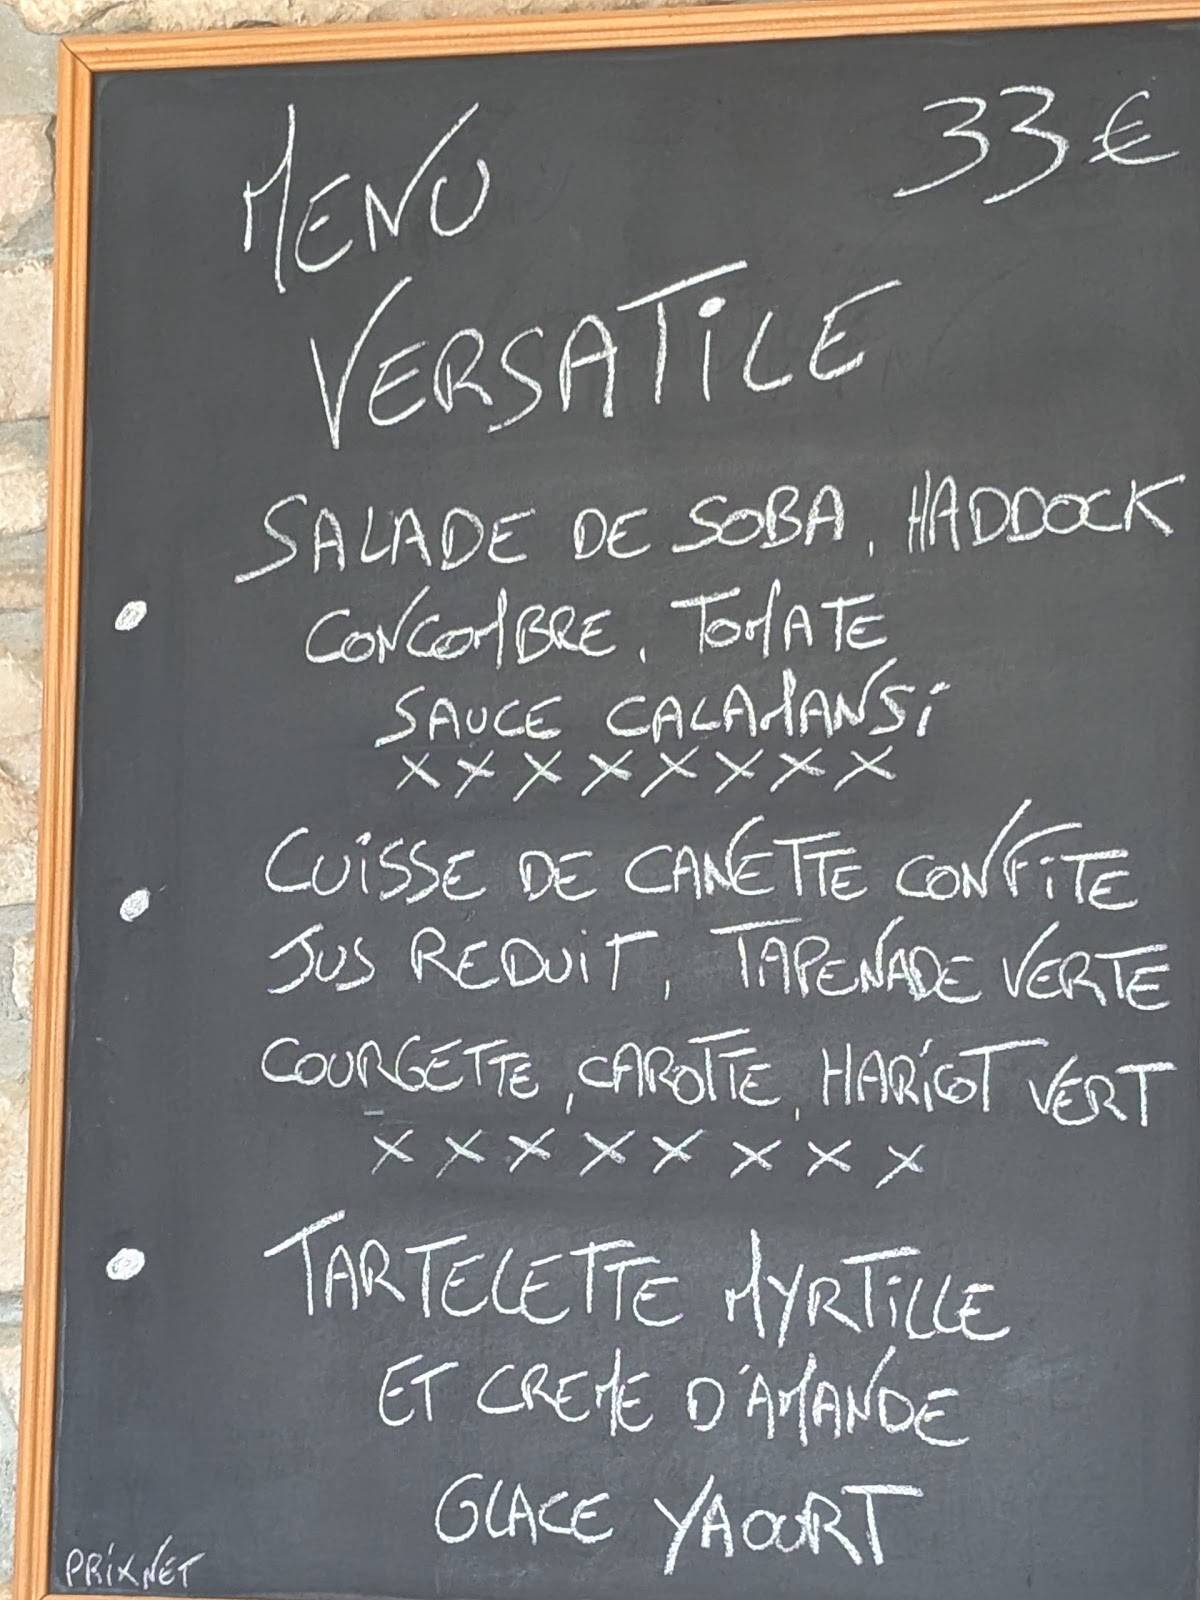 MENU 33€
VERSATiLE
SALADE DE SOBA, HADDOCK
CONCOMBRE, TOMATE
SAUCE CALAMANSi
xxxxxxxx
CUiSSE DE CANETTE CONFiTE
JUS REDUiT, TAPENADE VERTE
COURGETTE, CAROTTE, HARiCOT VERT
xxxxxxxx
TARTELETTE MYRTiLLE
ET CREME D'AMANDE
GLACE YAOURT
PRiX NET